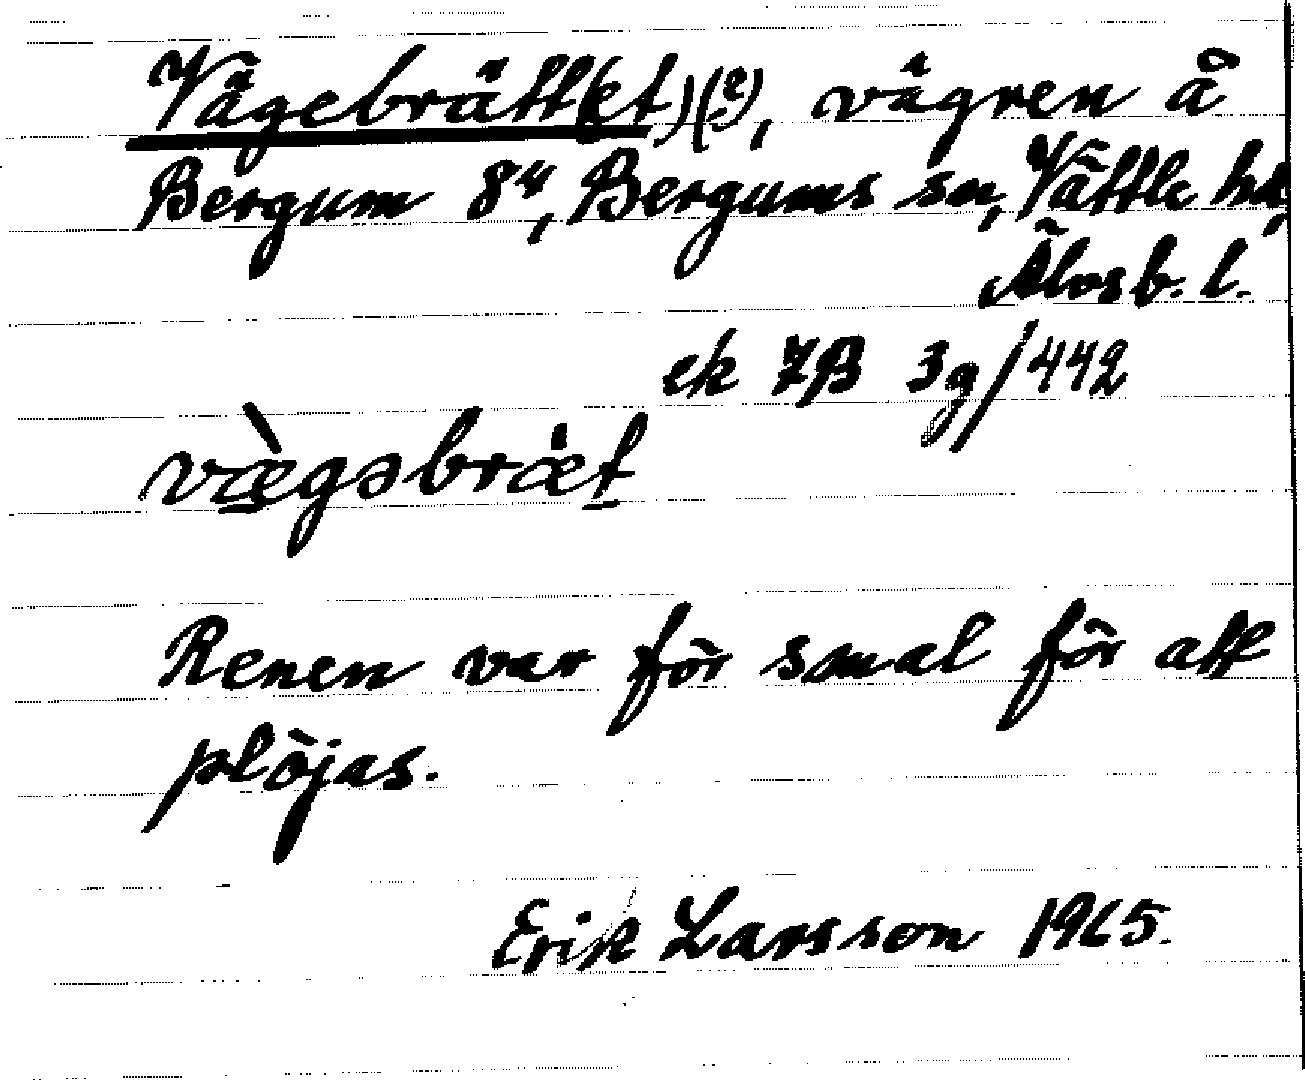 Vägebrätt(et)(?), vägren å
Bergum 8⁴, Bergums sn, Vättle hd,
Älvsb. l.
ek 7B 3g/442
væ̀gəbræt
Renen var för smal för att
plöjas.
Erik Larsson 1965.